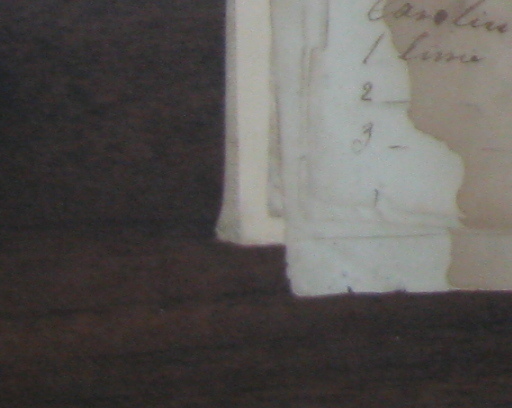 Carolin
1 time
2
3